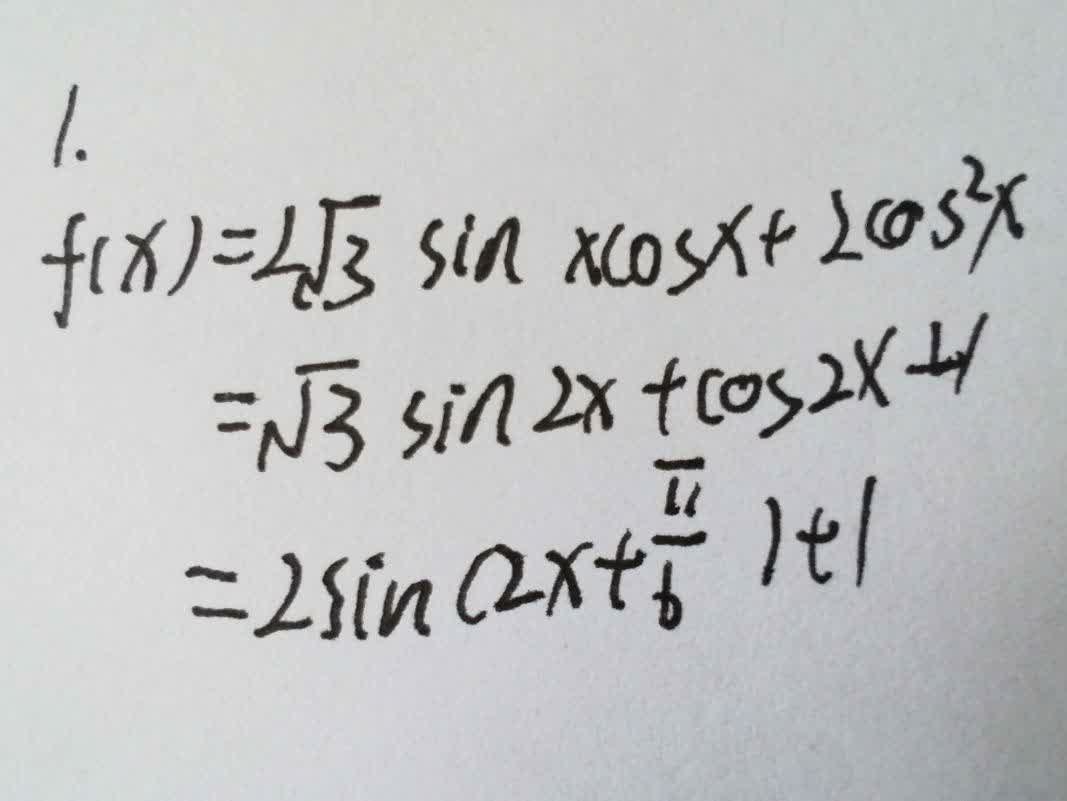 1.
f(x)=2√3 sin xcosx+2cos²x
=√3 sin2x+cos2x+1
=2sin(2x+π/6)+1